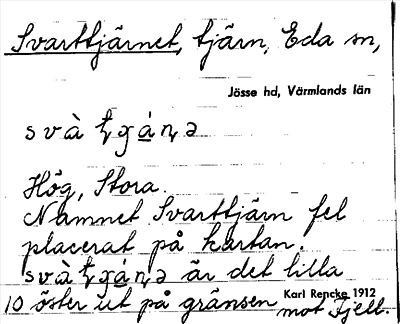 Svarttjärnet, tjärn, Eda sn,
Jösse hd, Värmlands län
Hög, Stora.
Namnet Svarttjärn fel
placerat på kartan.
är det lilla
10 öster ut på gränsen Karl Rencke 1912
mot Fjell.